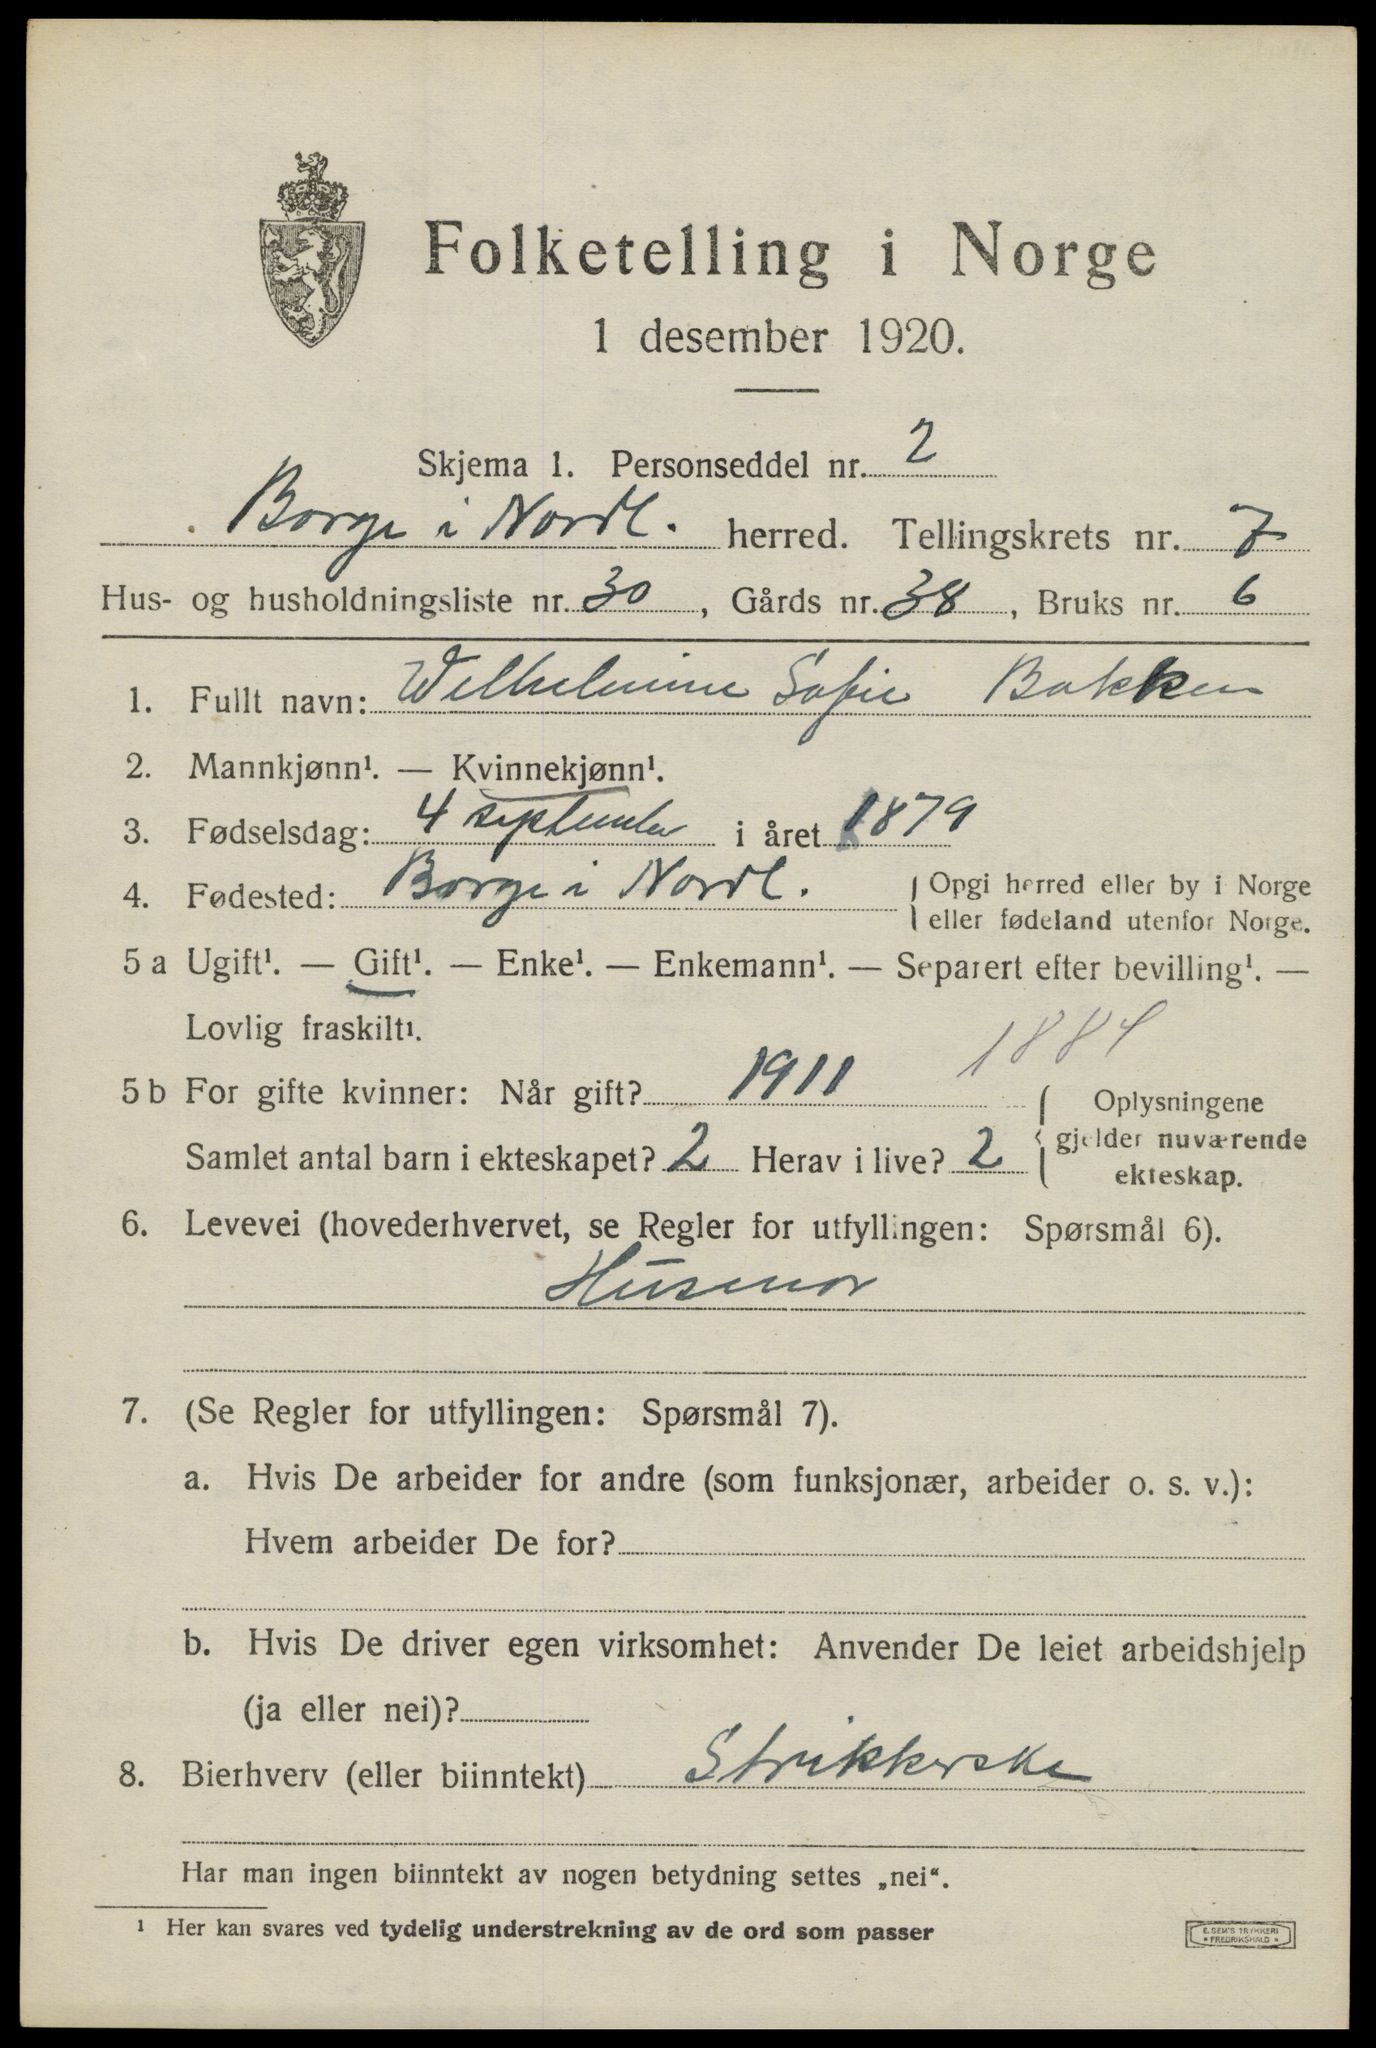 Folketelling i Norge
1 desember 1920.
Skjema 1. Personseddel nr. 2
Borge i Nordl. herred. Tellingskrets nr. 7
Hus- og husholdningsliste nr. 30, Gårds nr. 38, Bruks nr. 6
1. Fullt navn: Wilhelmine Sofie Bakken
2. Mannkjønn¹. — Kvinnekjønn¹.
3. Fødselsdag: 4 september i året 1879
4. Fødested: Borge i Nordl. Opgi herred eller by i Norge
eller fødeland utenfor Norge.
5 a Ugift¹. — Gift¹. — Enke¹. — Enkemann¹. — Separert efter bevilling¹. —
Lovlig fraskilt¹.
1884
5 b For gifte kvinner: Når gift? 1911 Oplysningene
gjelder nuværende
Samlet antal barn i ekteskapet? 2 Herav i live? 2 ekteskap.
6. Levevei (hovederhvervet, se Regler for utfyllingen: Spørsmål 6).
Husmor
7. (Se Regler for utfyllingen: Spørsmål 7).
a. Hvis De arbeider for andre (som funksjonær, arbeider o. s. v.):
Hvem arbeider De for?
b. Hvis De driver egen virksomhet: Anvender De leiet arbeidshjelp
(ja eller nei)?
8. Bierhverv (eller biinntekt) Strikkerske
Har man ingen biinntekt av nogen betydning settes „nei“.
¹ Her kan svares ved tydelig understrekning av de ord som passer
E. SEM'S TRYKKERI
* FREDRIKSHALD *